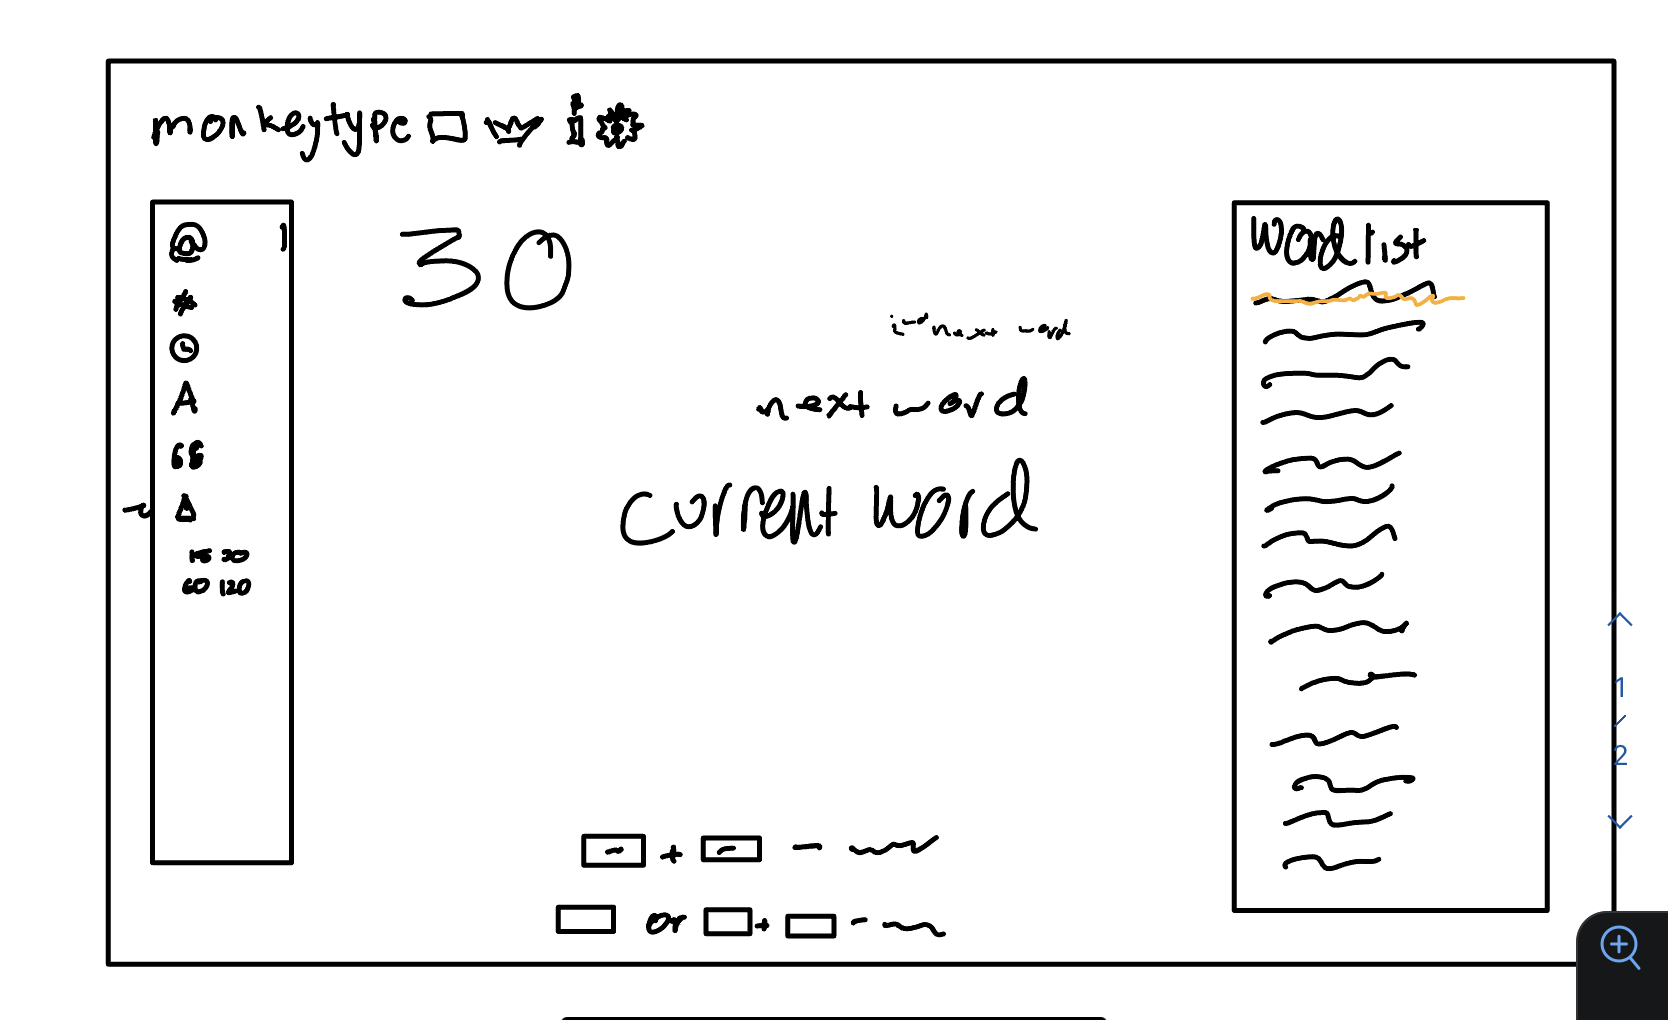 monkeytype i
@
*
A
66
15 30
60 120
30
next word
next word
current word
+ -
or + -
word list
1
/
2